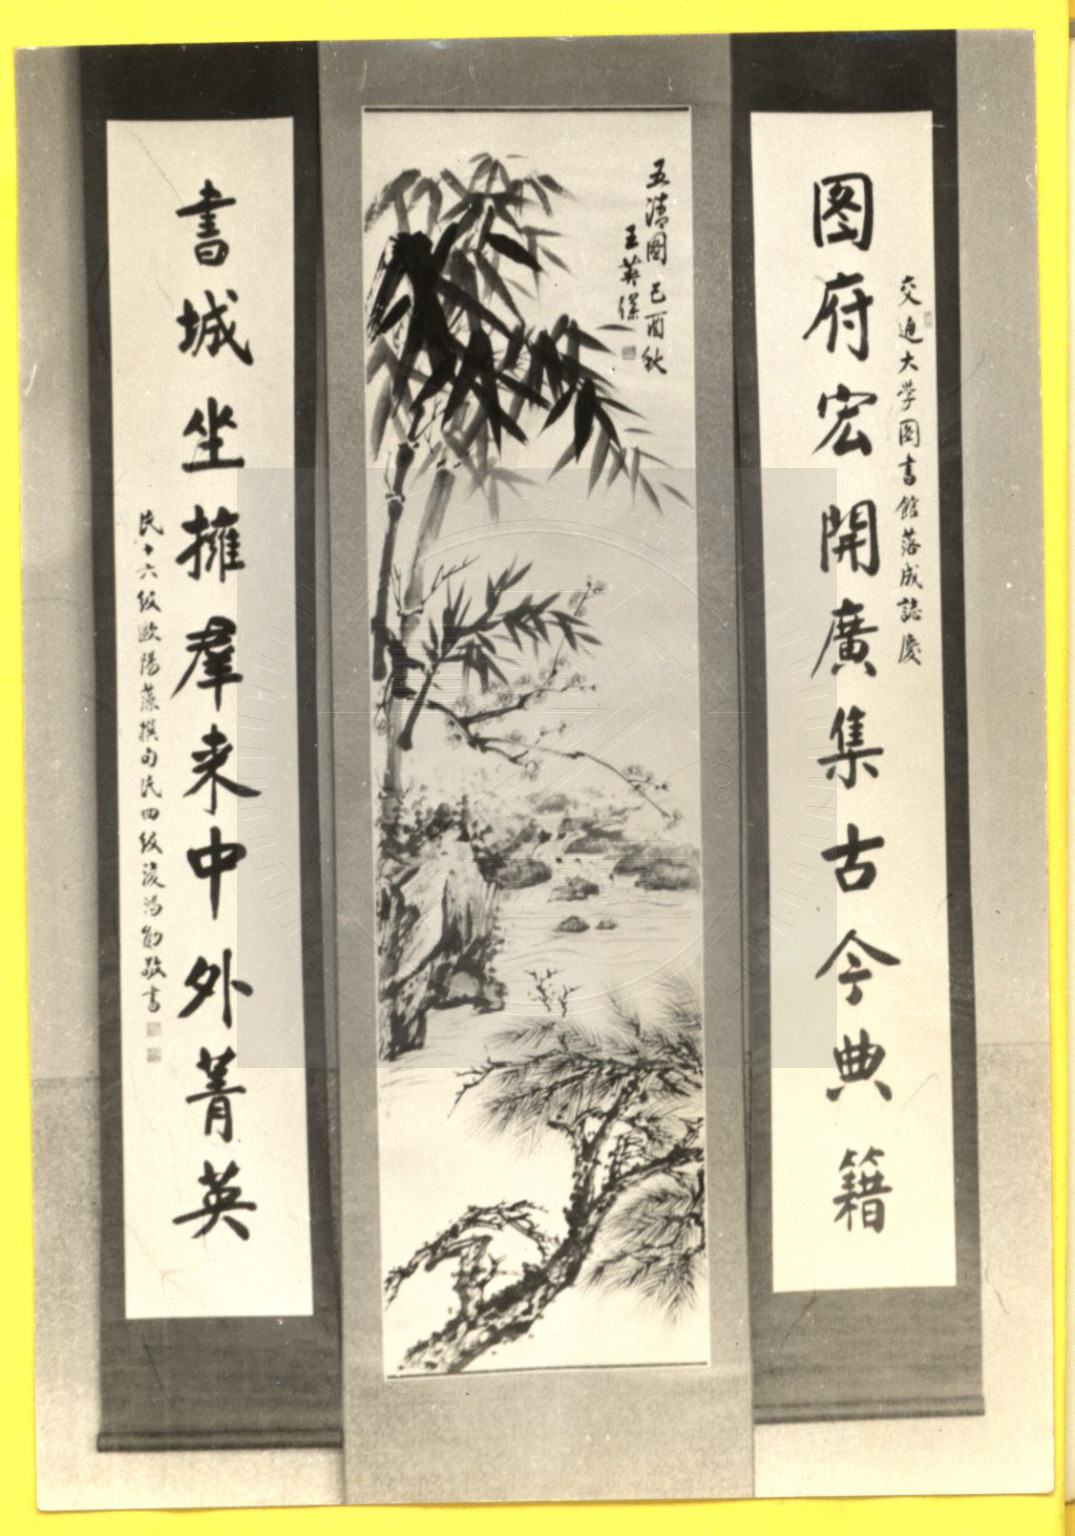 交通大学圖書館落成誌慶
圖府宏開廣集古今典籍
五清圖 己酉秋
王英保
書城坐擁羣来中外菁英
民十六級歐陽藻撰句民四級凌鴻勛敬書